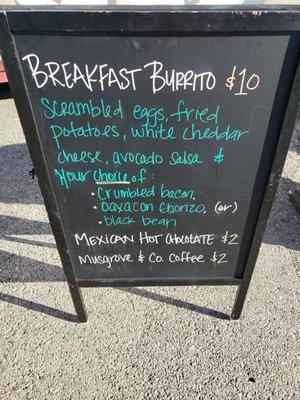 BREAKFAST BURRITO $10
Scrambled eggs, fried
potatoes, white cheddar
cheese, avocado salsa &
Your choice of:
• crumbled bacon,
• oaxacan chorizo, (or)
• black bean
MEXICAN HOT CHOCOLATE $2
MUSGROVE & CO. COFFEE $2